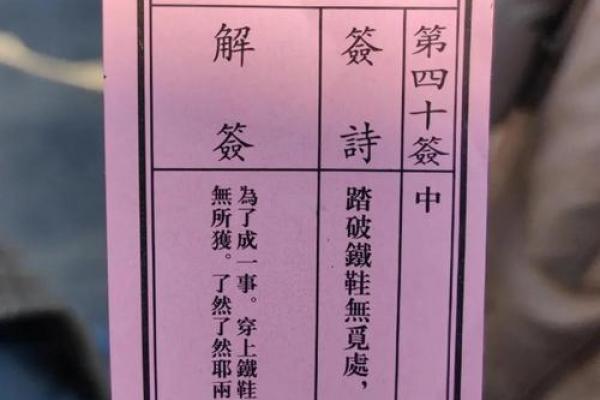 第四十簽
中
簽詩
踏破鐵鞋無覓處，
解簽
為了成一事。穿上鐵鞋
無所獲。了然了然耶兩